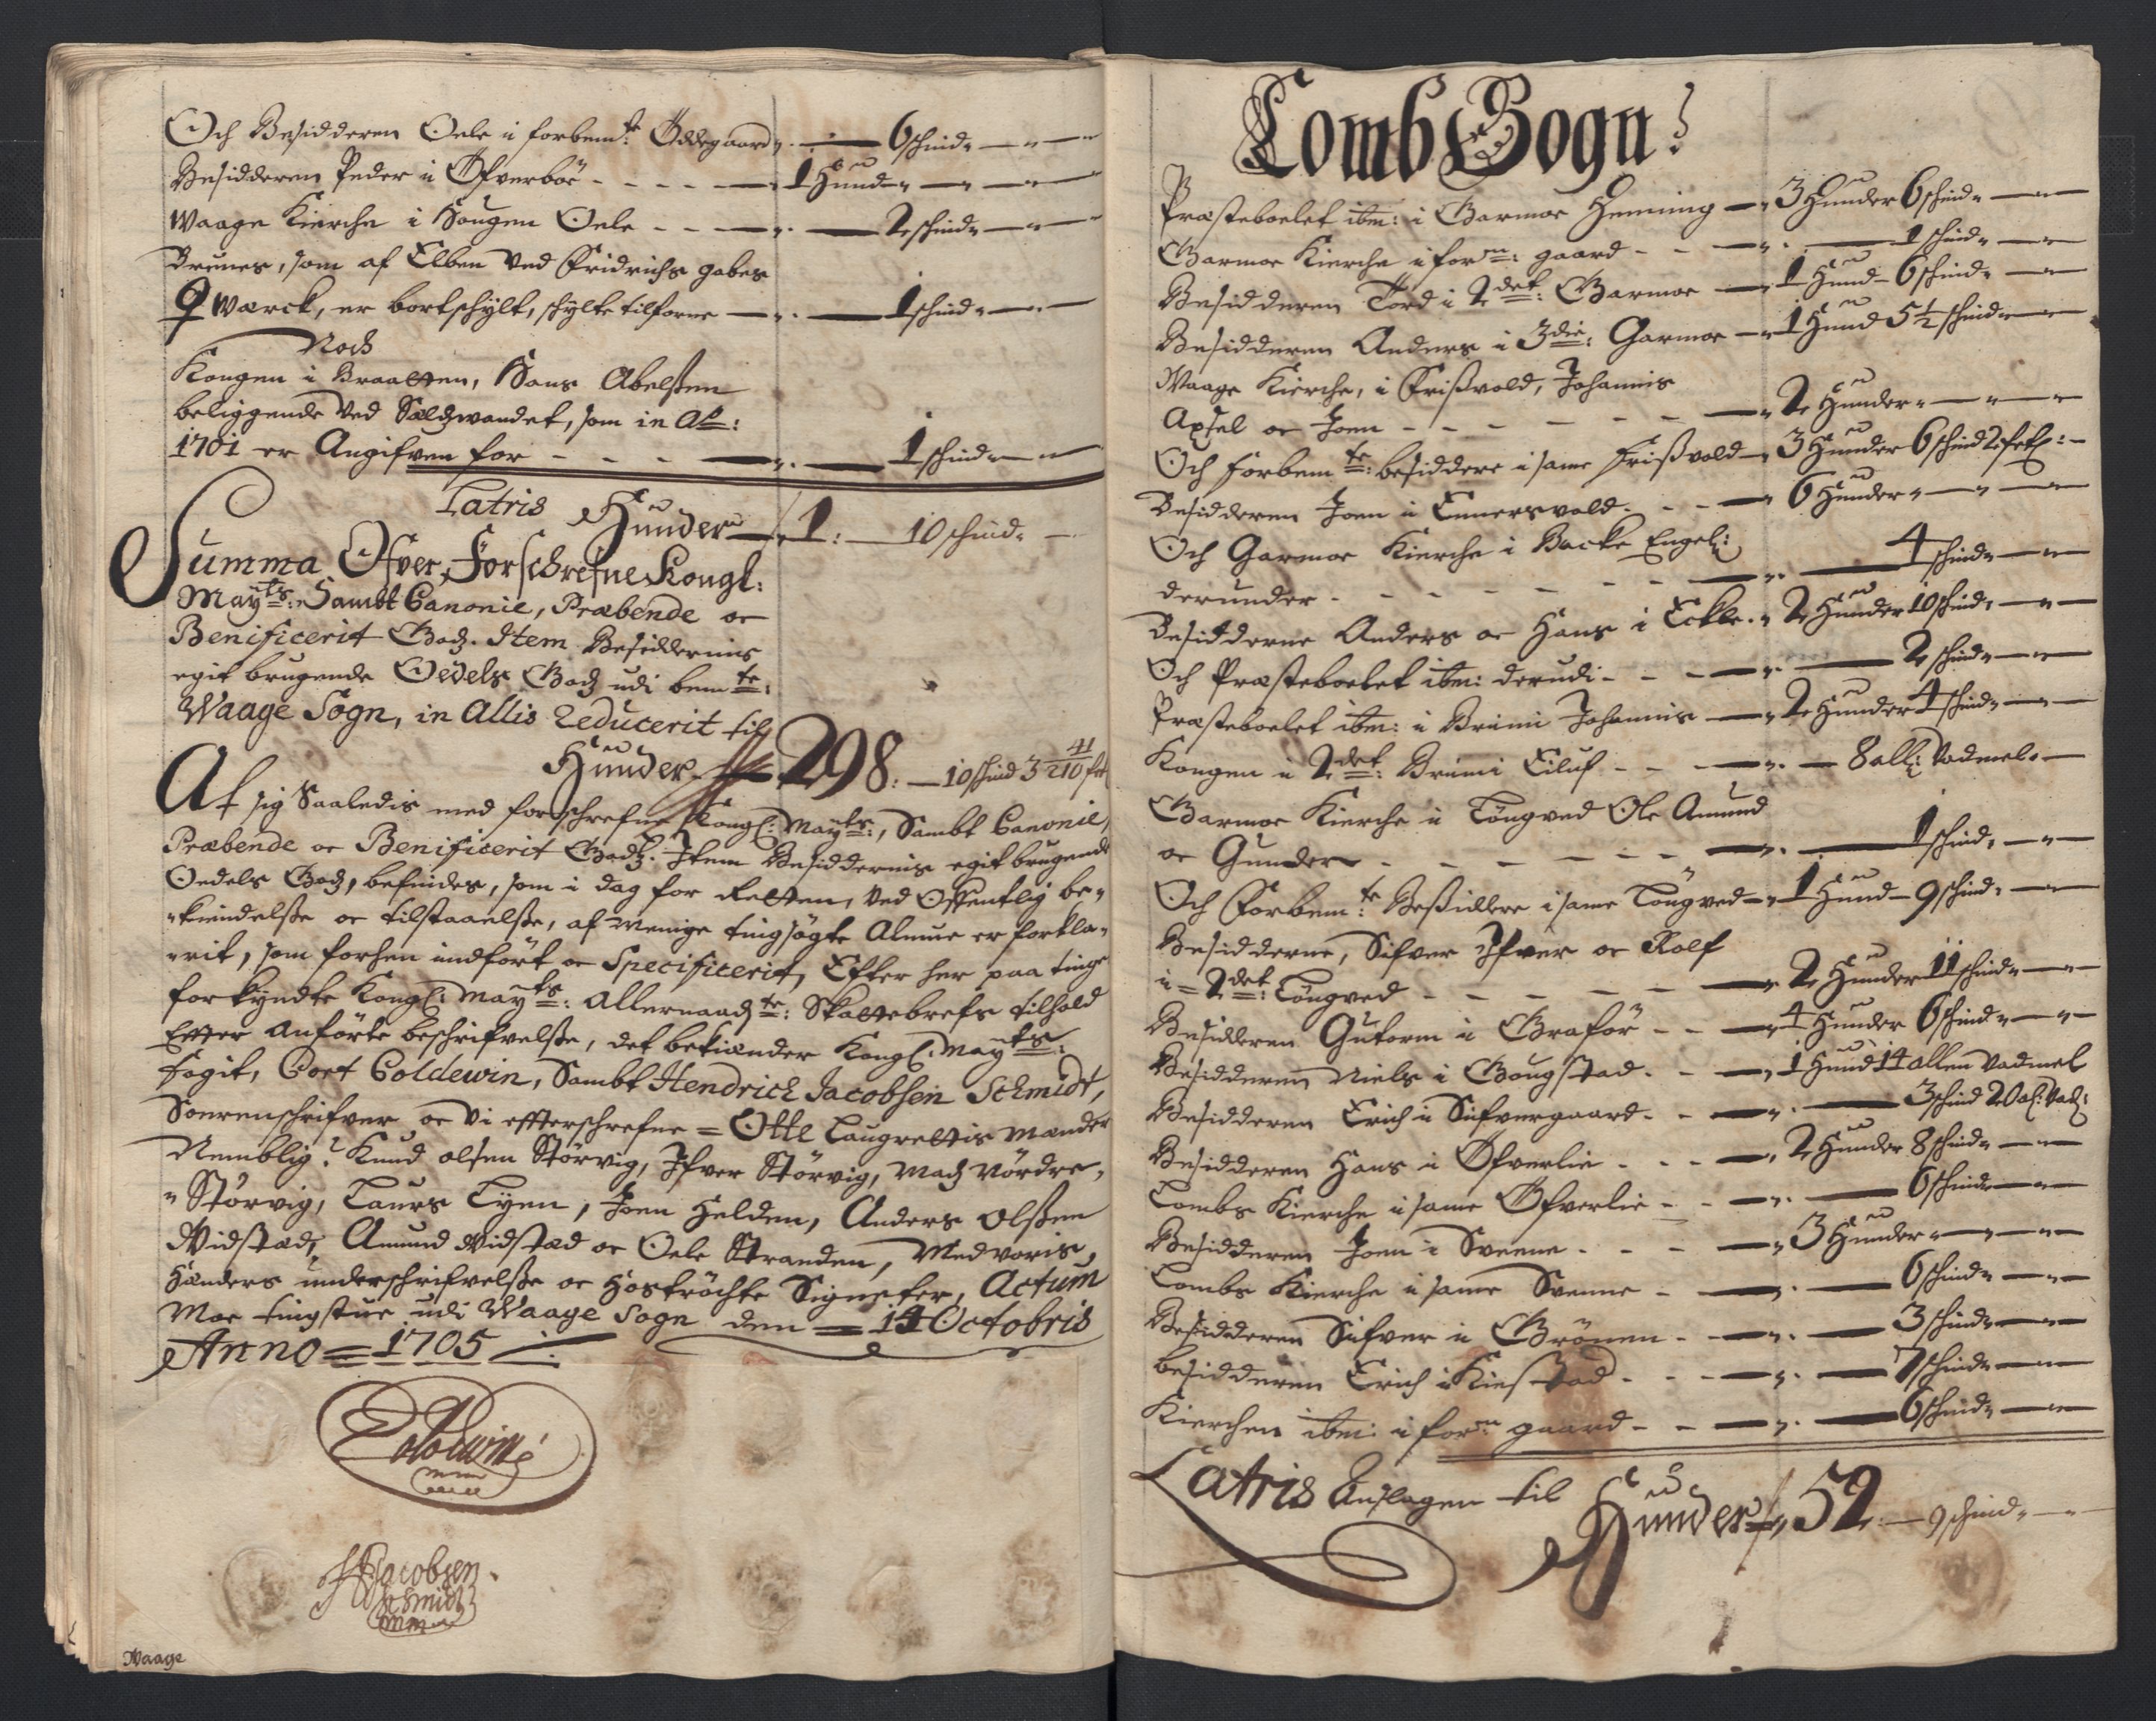 Och Besidderen Oele i forbem:te Ødegaard — 6 schind
Besidderen Peder i Øfverbøe — 1 Hund
Waage Kierche i Hougen Oele — 2 schind
Brunes, som af Elben ved Fridrichs gabes
Qwærck, er bortschylt, schylte tilforne — 1 schind
Noch
Kongen i Braatten, Hans Abelssen
beliggende ved Sælszwandet, som in Ao:
1701 er Angifven for — 1 schind
Latris Hunder — 1: 10 schind
Summa Ofver Forschrefne Kongl:
Mayts: Sambt Canonie, Præbende oc
Benificerit Godz. Item Besiddernis
egit brugende Oedels Godz udi bemte:
Waage Sogn, in Allis Reducerit til
Hunder — 298: — 10 schind 3 41/210 sk
At sig Saaledis med forschrefne Kongl: Mayts:, Sambt Canonie,
Præbende oc Benificerit Godz. Item Besiddernis egit brugende
Oedels Godz, befindes, som i dag for Retten, ved Offentlig be-
kiendelsse oc tilstaaelsse, af menige tingsøgte Almue er forkla-
rit, som forhen indført oc Specificerit, Efter her paa tinge
forkyndte Kongl: Mayts: Allernaadste: Skattebrefs tilhold
Effter Anførte beschrifvelsse, det bekiænder Kongl: Mayts:
fogit, Cort Coldewin, Sambt Hendrich Jacobsen Schmidt,
Sorenschrifver oc Vi effterschrefne = Otte Laugrettis mænder
Nemblig: Knud olsen Størvig, Ifver Størvig, Madz Nørdre-
Størvig, Laurs Lyen, Joen Helden, Anders Olssen
Widstad, Amund Widstad oc Oele Stranden, Med voris
Hænders underschrifvelsse oc hostrøchte Signeter, Actum
Moe tingstue udi Waage Sogn den = 14 Octobris
Anno = 1705
Coldewin
HJacobsen
Schmidt
mm
Waage
Lomb Sogn:
Præsteboelet ibm: i Garmoe Henning — 3 Hunder 6 schind
Garmoe Kierche i forn: gaard — 1 schind
Besidderen Tord i 2det: Garmoe — 1 Hund 6 schind
Besidderen Anders i 3die: Garmoe — 1 Hund 5 1/2 schind
Waage Kierche, i Frisvold, Johannis
Axsel oc Joen — 2 Hunder
Och forbemte: besiddere i same Frisvold — 3 Hunder 6 schind
Besidderen Joen i Ennersvold — 6 Hunder
Och Garmoe Kierche i Backe Engel:
derunder — 4 schind
Besidderne Anders oc Hans i Eckre — 2 Hunder 10 schind
Och Præsteboelet ibm: derudi — 2 schind
Præsteboelet ibm: i Brimi Johannis — 2 Hunder 4 schind
Kongen i 2det: Brimi Eiluf — 8 all: Vadmel
Garmoe Kierche i Løngved Ole Amund
oc Gunder — 1 schind
Och Forbem:te Besiddere i same Løngved — 1 Hund 9 schind
Besidderne, Sifver Ifver oc Rolf
i = 2det: Løngved — 2 Hunder 11 schind
Besidderen Gutorm i Grafør — 4 Hunder 6 schind
Besidderen Niels i Gougstad — 1 Hund 14 allen Vadmel
Besidderen Erich i Sifvergaard — 3 schind 20 al: Vad:
Besidderen Hans i Øfverlie — 2 Hunder 8 schind
Lombs Kierche i same Øfverlie — 6 schind
Besidderen Joen i Sveene — 3 Hunder
Lombs Kierche i same Sveene — 6 schind
Besidderen Sifver i Grönen — 3 schind
besidderen Erich i Kiestad — 7 schind
Kierchen ibm: i forn gaard — 6 schind
Latris Anslagen til Hunder — 52: — 9 schind